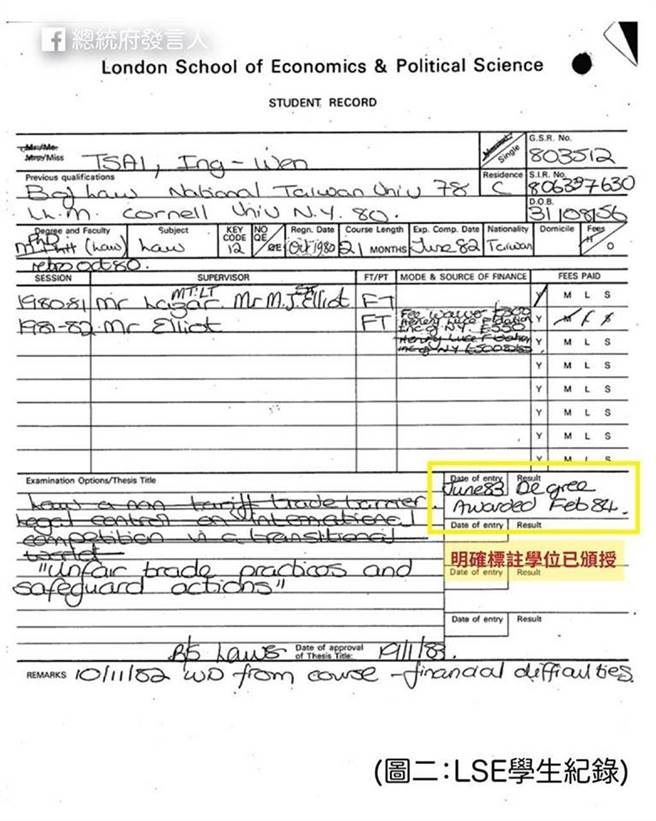 f 總統府發言人
London School of Economics & Political Science
STUDENT RECORD
Mr/Ms
Mrs/Miss TSAI, Ing-Wen
Married Single
G.S.R. No. 803512
Previous qualifications
Residence C
S.I.R. No. 806357630
B of Law National Taiwan Univ 78
LL.M. Cornell Univ N.Y. 80.
D.O.B. 31/08/56
Degree and Faculty Subject KEY CODE NO QE/ QE Regn. Date Course Length Exp. Comp. Date Nationality Domicile Fees
PhD
MPhil (Law) Law 12 Oct 1980 21 MONTHS June 82 Taiwan H O
retro oct 80.
SESSION SUPERVISOR FT/PT MODE & SOURCE OF FINANCE FEES PAID
1980-81 Mr Lazar MT:LT Mr M.J. Elliot FT Y M L S
1981-82 Mr Elliot FT Y M L S
Y M L S
Y M L S
Y M L S
Y M L S
Y M L S
Y M L S
Examination Options/Thesis Title
Date of entry Result
June 83 Degree
Awarded Feb 84.
Law a non tariff trade barrier.
Legal control on international
competition in a transitional
world
Date of entry Result
明確標註學位已頒授
"Unfair trade practices and
safeguard actions"
Date of entry Result
Date of entry Result
B/S Laws Date of approval of Thesis Title: 19/1/83.
REMARKS 10/11/82 WD from course - financial difficulties.
(圖二：LSE學生紀錄)